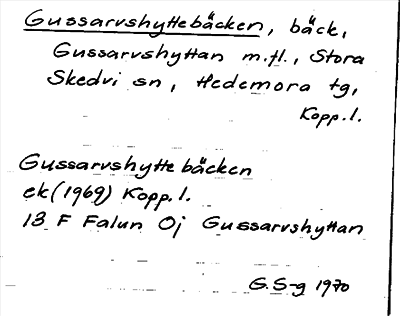 Gussarvshyttebäcken, bäck,
Gussarvshyttan m.fl., Stora
Skedvi sn, Hedemora tg,
Kopp.l.
Gussarvshyttebäcken
ek(1969) Kopp.l.
13 F Falun 0j Gussarvshyttan
G.S-g 1970